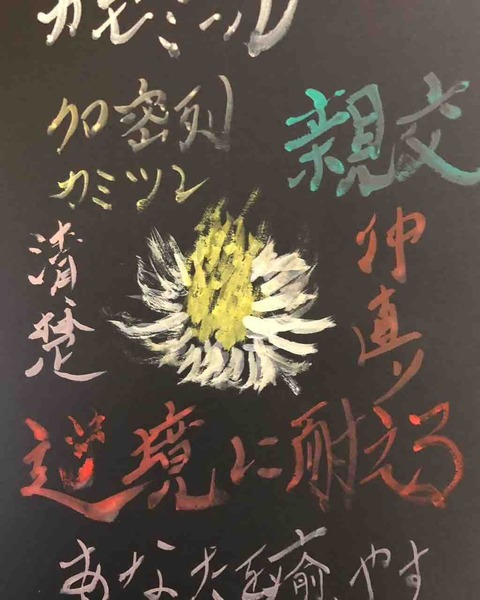 カモミール
加密列
カミツレ
親交
清楚
仲直り
逆境に耐える
あなたを癒やす